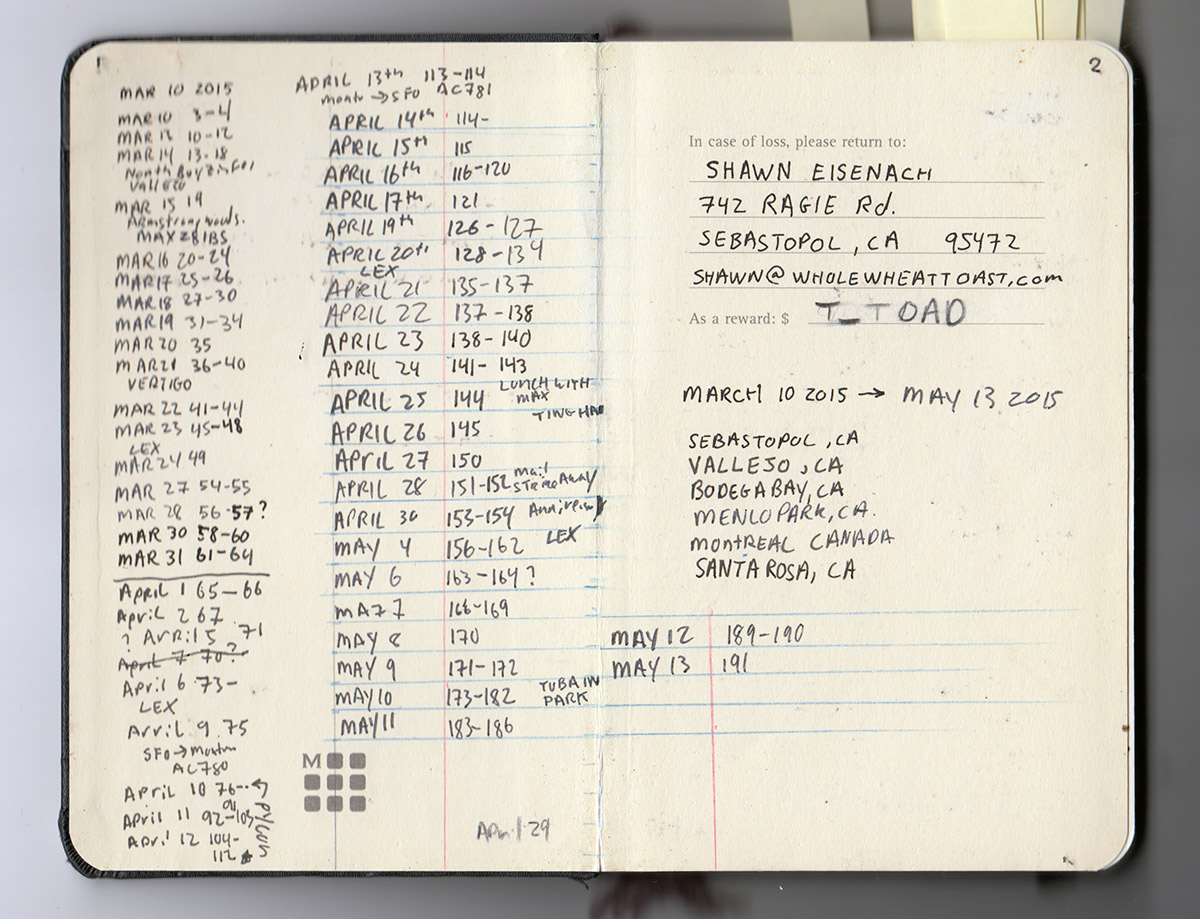 1
MAR 10 2015
MAR 10 3-4
MAR 13 10-12
MAR 14 13-18
North Bay
Vallejo
MAR 15 19
Armstrong woods.
MAX 28 lBS
MAR 16 20-24
MAR 17 25-26
MAR 18 27-30
MAR 19 31-34
MAR 20 35
MAR 21 36-40
VERTIGO
MAR 22 41-44
MAR 23 45-48
LEX
MAR 24 49
MAR 27 54-55
MAR 28 56-57?
MAR 30 58-60
MAR 31 61-64
April 1 65-66
April 2 67
? April 5 71
April 7 70?
April 6 73-
LEX
April 9 75
SFO → Montr
AC780
April 10 76-91
April 11 92-103
April 12 104-
112
PYCON
APRIL 13th 113-114
Montr → SFO AC781
APRIL 14th 114-
APRIL 15th 115
APRIL 16th 116-120
APRIL 17th 121
APRIL 19th 126-127
APRIL 20th 128-134
LEX
APRIL 21 135-137
APRIL 22 137-138
APRIL 23 138-140
APRIL 24 141-143
APRIL 25 144 LUNCH WITH
MAX
TING HAO
APRIL 26 145
April 27 150
APRIL 28 151-152 mail
APRIL 30 153-154
MAY 4 156-162 LEX
MAY 6 163-164?
MAY 7 166-169
MAY 8 170
MAY 9 171-172
MAY 10 173-182 TUBA IN
PARK
MAY 11 183-186
M
April 29
2
In case of loss, please return to:
SHAWN EISENACH
742 RAGLE Rd.
SEBASTOPOL, CA 95472
SHAWN@WHOLEWHEATTOAST.com
As a reward: $ T_TOAD
MARCH 10 2015 → MAY 13 2015
SEBASTOPOL, CA
VALLEJO, CA
BODEGA BAY, CA
MENLO PARK, CA.
MONTREAL CANADA
SANTA ROSA, CA
MAY 12 189-190
MAY 13 191